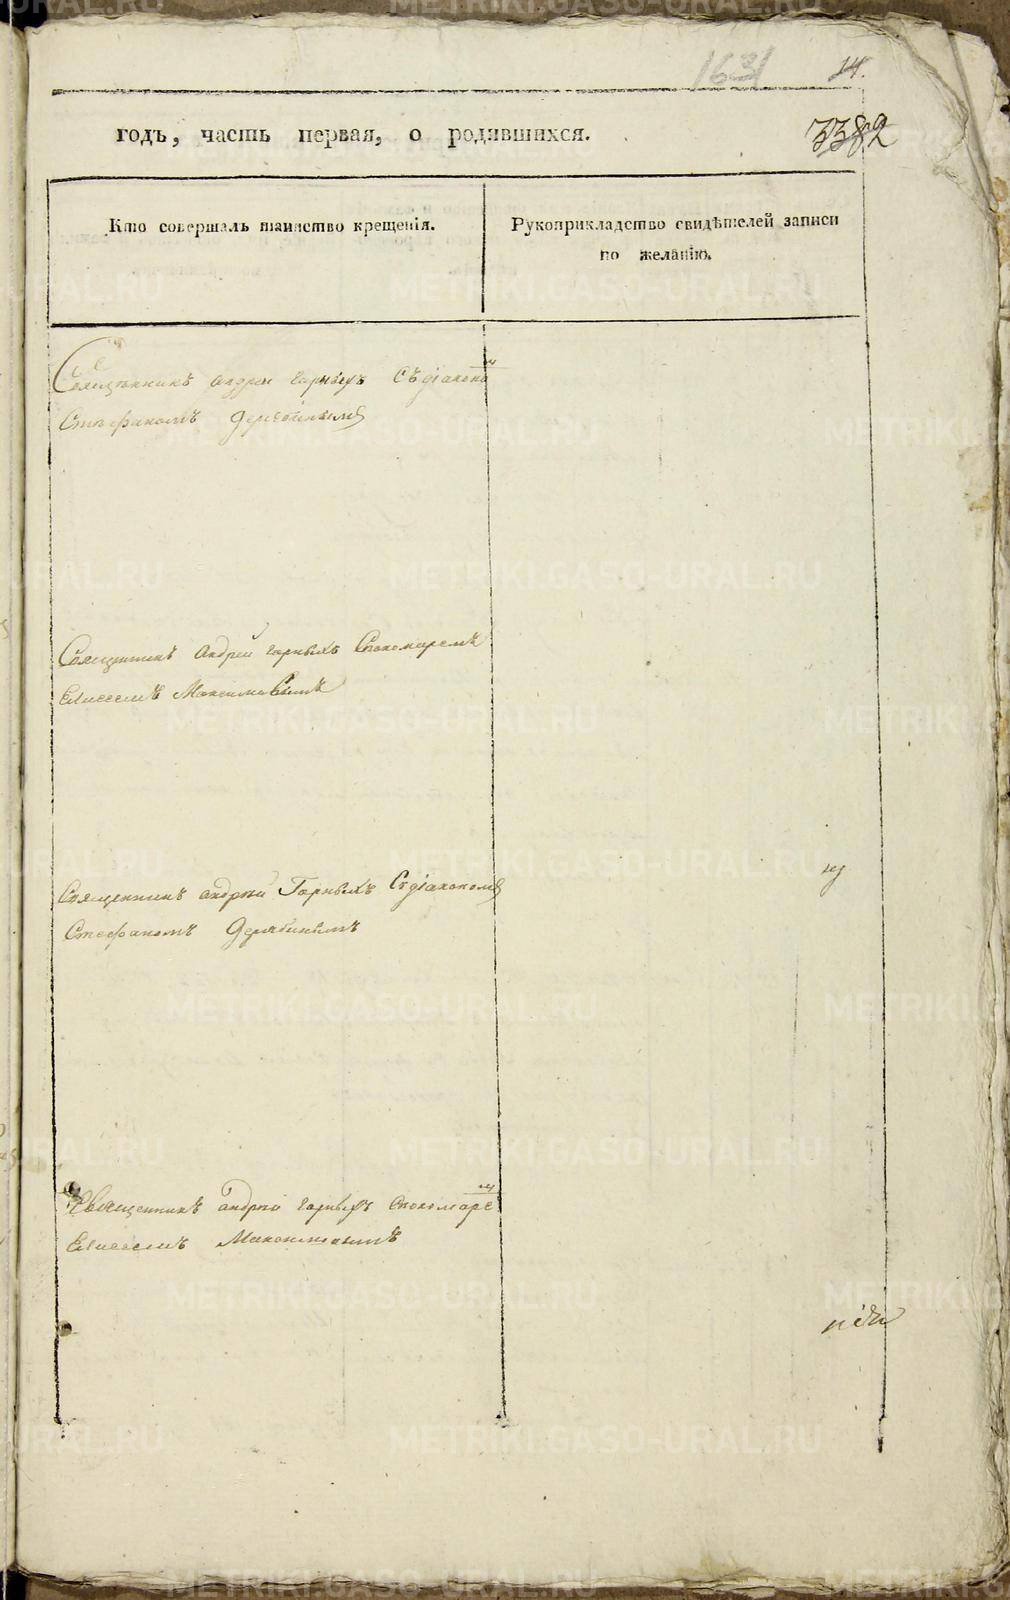 METRIKI.GASO-URAL.RU
1631
14.
3382
годъ, часть первая, о родившихся.
Кто совершалъ таинство крещенія.
Рукоприкладство свидѣтелей записи
по желанію.
Священникъ андреи Гарныхъ Съ діаконом
Стефаномъ Дерябинымъ
Священникъ Андрей Гарныхъ Спономаремъ
Елисеемъ Максимовымъ
Священникъ андрѣй Гарныхъ Съ діакономъ
Стефаномъ Дерябинымъ
Священникъ андрѣй Гарныхъ Спономарем
Елисеемъ Максимовымъ